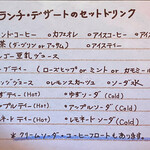 ランチ・デザートのセットドリンク
ンドコーヒー ○カフェオレ ○アイスコーヒー ○アイス
茶(ダージリン or アッサム) ○アイスティー
ンゴー豆乳ジュース
ーブティー(ローズヒップ or ミント or カモミール
ジュース ○レモンスカッシュ ○ソーダ水
ティー(Hot) ○ゆずソーダ(Cold)
プルティー(Hot) ○アップルソーダ(Cold)
ネードティー(Hot) ○レモネードソーダ(Cold)
※クリームソーダ・コーヒーフロートもあります。